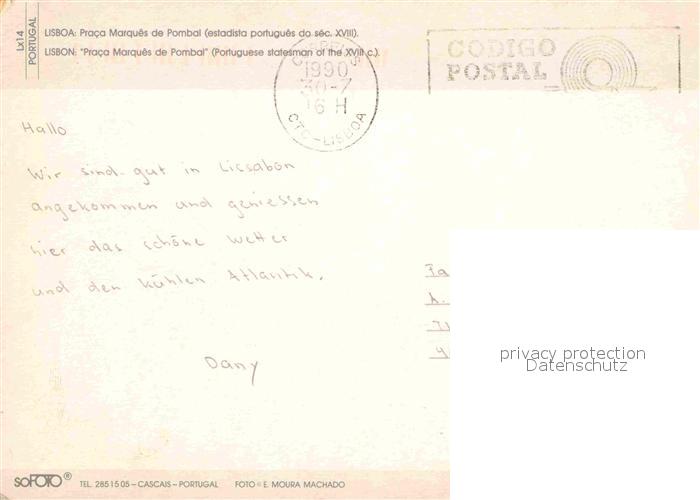 Lx14
PORTUGAL
LISBOA: Praça Marquês de Pombal (estadista português do séc. XVIII).
LISBON: "Praça Marquês de Pombal" (Portuguese statesman of the XVIII c.).
CORREIOS
1990
30-7
16 H
CTC-LISBOA
CODIGO
POSTAL
Hallo
Wir sind gut in Lissabon
angekommen und geniessen
hier das schöne Wetter
und den kühlen Atlantik.
Dany
Fa
privacy protection
Datenschutz
SOFOTO®
TEL. 285 15 05 – CASCAIS – PORTUGAL FOTO © E. MOURA MACHADO